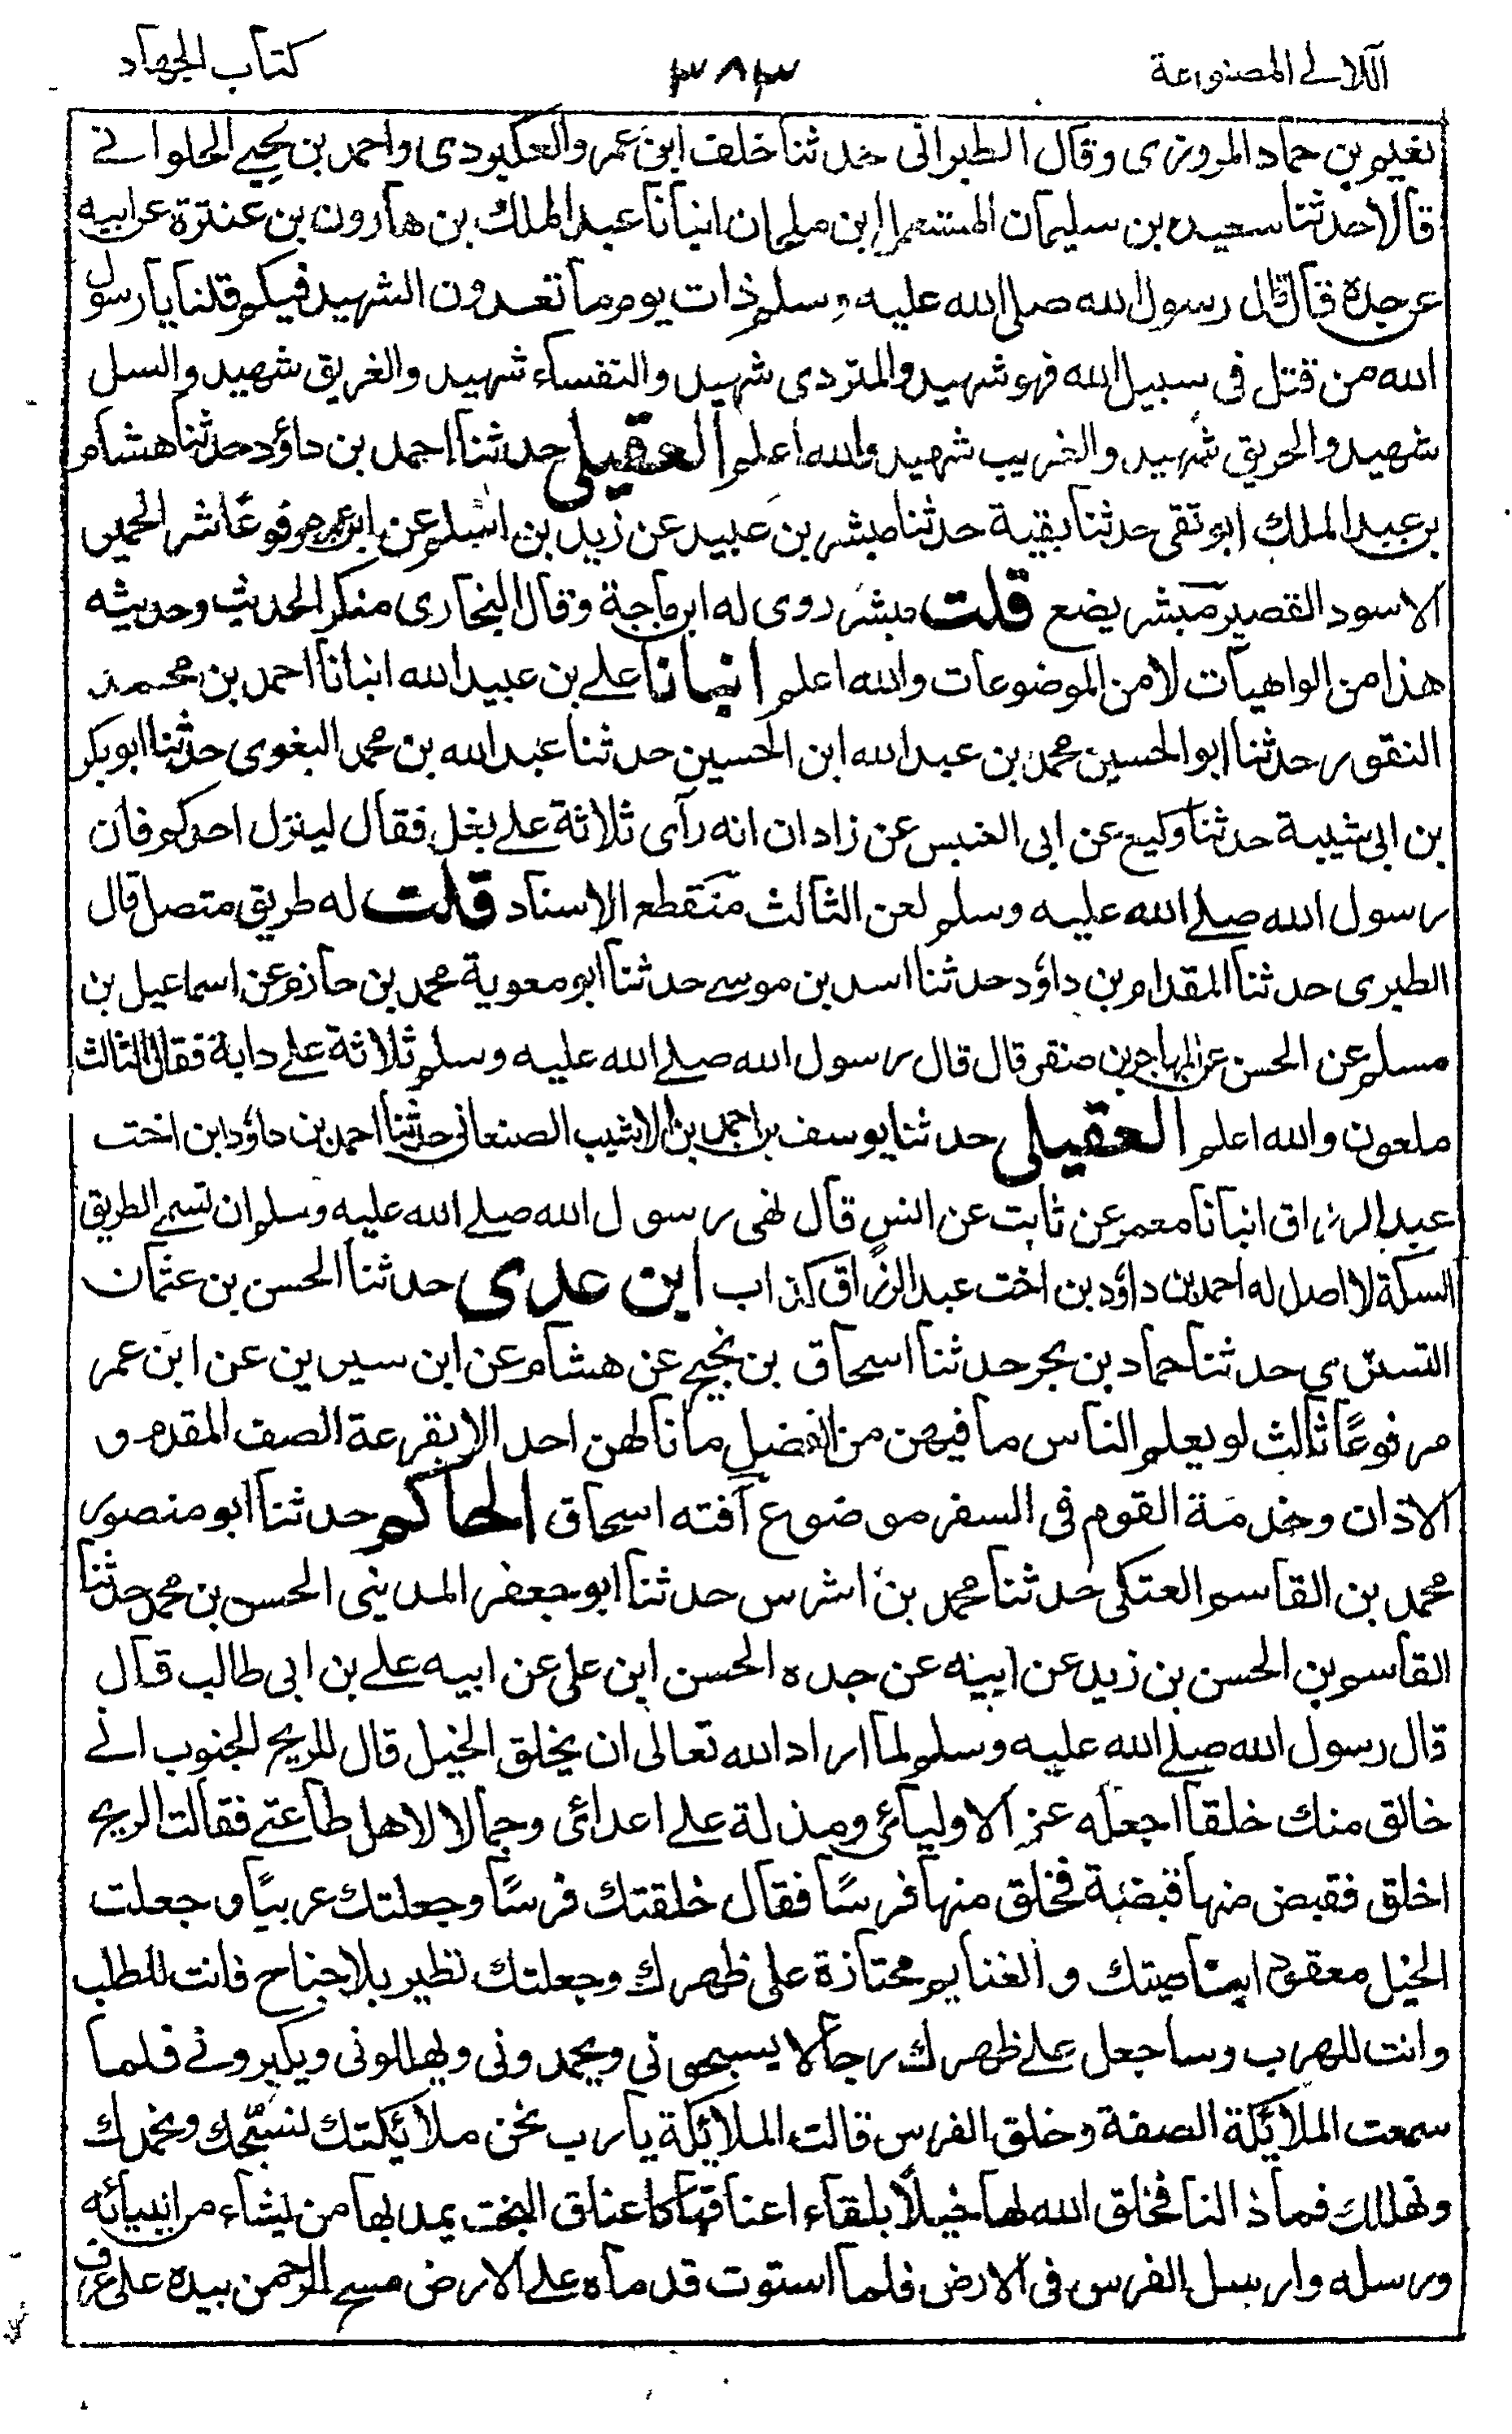 اللآلی المصنوعة
٣٨٣
كتاب الجهاد
نعيم بن حماد المروزى وقال الطبرانى حدثنا خلف ابن عمرو العكبورى واحمد بن يحيے الحلوانے
قالا حدثنا سعيد بن سليمان ابن انبانا عبد الملك بن هارون بن عنترة عن ابيه
عن جده قال قال رسول الله صلى الله عليه وسلم ذات يوم ما تعدون الشهيد فيكم قلنا يا رسول
الله من قتل فى سبيل الله فهو شهيد والمتردى شهيد والنفساء شهيد والغريق شهيد والسل
شهيد والحريق شهيد والغريب شهيد والله اعلم العقيلى حدثنا احمد بن داؤد حدثنا هشام
بن عبد الملك ابو تقى حدثنا بقية حدثنا مبشر بن عبيد عن زيد بن اسلم عن ابن عمر مرفوعا شر الحمير
الاسود القصير مبشر يضع قلت مبشر روى له ابن ماجة وقال البخارى منكر الحديث وحديثه
هذا من الواهيات لا من الموضوعات والله اعلم انبانا علے بن عبيد الله انبانا احمد بن محمد
النقور حدثنا ابو الحسين محمد بن عبد الله ابن الحسين حدثنا عبد الله بن محمد البغوى حدثنا ابو بكر
بن ابى شيبة حدثنا وكيع عن ابى العنبس عن زادان انه رآى ثلاثة علے بغل فقال لينزل احدكم فان
رسول الله صلے الله عليه وسلم لعن الثالث منقطع الاسناد قلت له طريق متصل قال
الطبرى حدثنا المقدام بن داؤد حدثنا اسد بن موسے حدثنا ابو معوية محمد بن حازم عن اسماعيل بن
مسلم عن الحسن عن المهاجر بن منقر قال قال رسول الله صلے الله عليه وسلم ثلاثة علے دابة فقال الثالث
ملعون والله اعلم العقيلى حدثنا يوسف بن احمد بن الاشيب الصنعانى حدثنا احمد بن داؤد ابن اخت
عبد الرزاق انبانا معمر عن ثابت عن انس قال نهى رسول الله صلے الله عليه وسلم ان تسمے الطريق
السكة لا اصل له احمد بن داؤد بن اخت عبد الرزاق كذاب ابن عدى حدثنا الحسن بن عثمان
التسترى حدثنا حماد بن بحر حدثنا اسحاق بن نجيح عن هشام عن ابن سيرين عن ابن عمر
مرفوعًا ثالث لو يعلم الناس ما فيهن من الفضل ما نالهن احد الا بقرعة الصف المقدم و
الاذان وخدمة القوم فى السفر موضوع آفته اسحاق الحاكم حدثنا ابو منصور
محمد بن القاسم العتكى حدثنا محمد بن اشرس حدثنا ابو جعفر المدينى الحسن بن محمد حدثنا
القاسم بن الحسن بن زيد عن ابيه عن جده الحسن ابن على عن ابيه علے بن ابى طالب قال
قال رسول الله صلے الله عليه وسلم لما اراد الله تعالى ان يخلق الخيل قال للريح الجنوب انے
خالق منك خلقا اجعله عز الاوليائى ومذلة علے اعدائى وجمالا لاهل طاعتے فقالت الريح
اخلق فقبض منها قبضة فخلق منها فرسًا فقال خلقتك فرسًا وجعلتك عربيًا وجعلت
الخيل معقود ابناصيتك والغنايم محتازة على ظهرك وجعلتك تطير بلا جناح فانت للطلب
وانت للهرب وساجعل علے ظهرك رجالا يسبحونى ويحمدونى ويهللونى ويكبرونے فلما
سمعت الملائكة الصفة وخلق الفرس قالت الملائكة يا رب نحن ملائيكتك نسبّحك ونحمدك
ونهللك فماذا لنا فخلق الله لها خيلًا بلقاء اعناقها كاعناق البخت يمد بها من يشاء من انبيائه
ورسله وارسل الفرس فى الارض فلما استوت قدماه علے الارض مسح الرحمن بيده على عرف